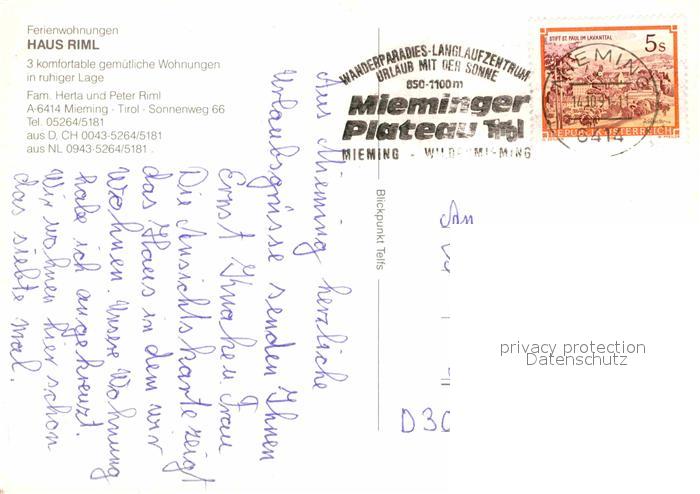 Ferienwohnungen
HAUS RIML
3 komfortable gemütliche Wohnungen
in ruhiger Lage
Fam. Herta und Peter Riml
A-6414 Mieming · Tirol · Sonnenweg 66
Tel. 05264/5181
aus D, CH 0043·5264/5181
aus NL 0943·5264/5181
WANDERPARADIES-LANGLAUFZENTRUM
URLAUB MIT DER SONNE
850-1100m
Mieminger
Plateau Tirol
MIEMING - WILDERMIEMING
STIFT ST. PAUL IM LAVANTTAL
5s
REPUBLIK ÖSTERREICH
MIEMING
6414
Aus Mieming herzliche
Urlaubsgrüsse senden Ihnen
Ernst u. Frau
Die Ansichtskarte zeigt
das Haus in dem wir
wohnen. Unsere Wohnung
habe ich angekreuzt.
Wir wohnen hier schon
das siebte Mal.
Blickpunkt Telfs
An
D30
privacy protection
Datenschutz